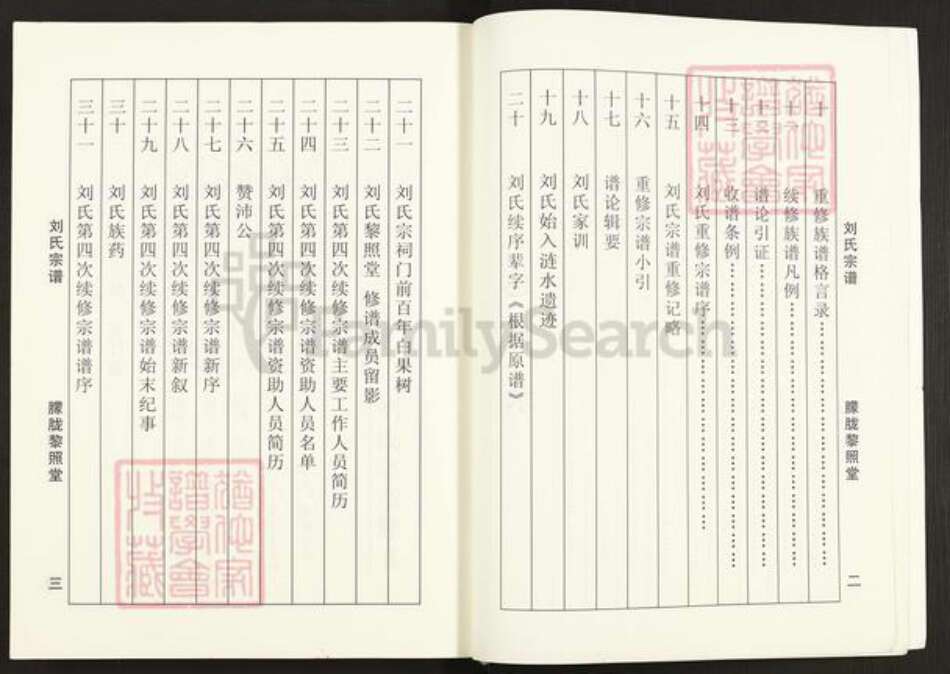 刘氏宗谱 朦胧黎照堂 二
十 重修族谱格言录……………………
十一 续修族谱凡例……………………
十二 谱论引证……………………
十三 收谱条例……………………
十四 刘氏重修宗谱序……………………
十五 刘氏宗谱重修记略
十六 重修宗谱小引
十七 谱论辑要
十八 刘氏家训
十九 刘氏始入涟水遗迹
二十 刘氏续序辈字《根据原谱》
二十一 刘氏宗祠门前百年白果树
二十二 刘氏黎照堂 修谱成员留影
二十三 刘氏第四次续修宗谱主要工作人员简历
二十四 刘氏第四次续修宗谱资助人员名单
二十五 刘氏第四次续修宗谱资助人员简历
二十六 赞沛公
二十七 刘氏第四次续修宗谱新序
二十八 刘氏第四次续修宗谱新叙
二十九 刘氏第四次续修宗谱始末纪事
三十 刘氏族药
三十一 刘氏第四次续修宗谱谱序
刘氏宗谱 朦胧黎照堂 三
猶他家
譜學會
收藏
猶他家
譜學會
收藏
FamilySearch